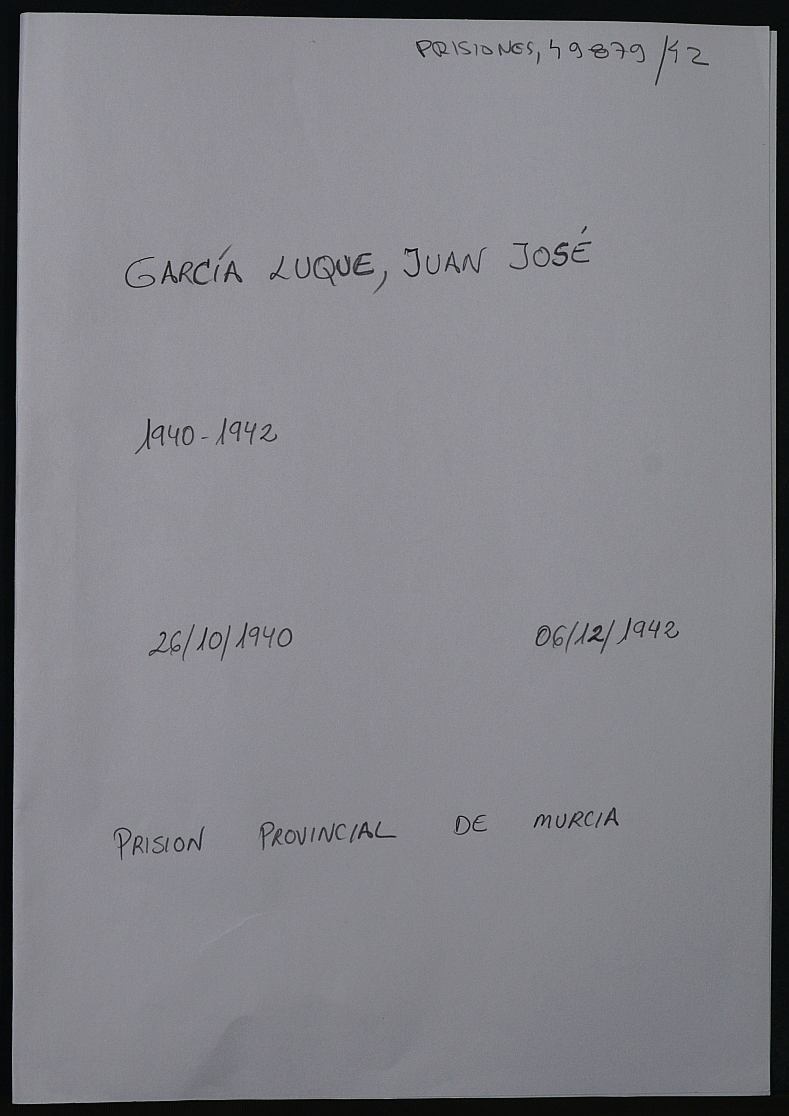 PRISIONES, 49879/42
GARCÍA LUQUE, JUAN JOSÉ
1940-1942
26/10/1940 06/12/1942
PRISION PROVINCIAL DE MURCIA